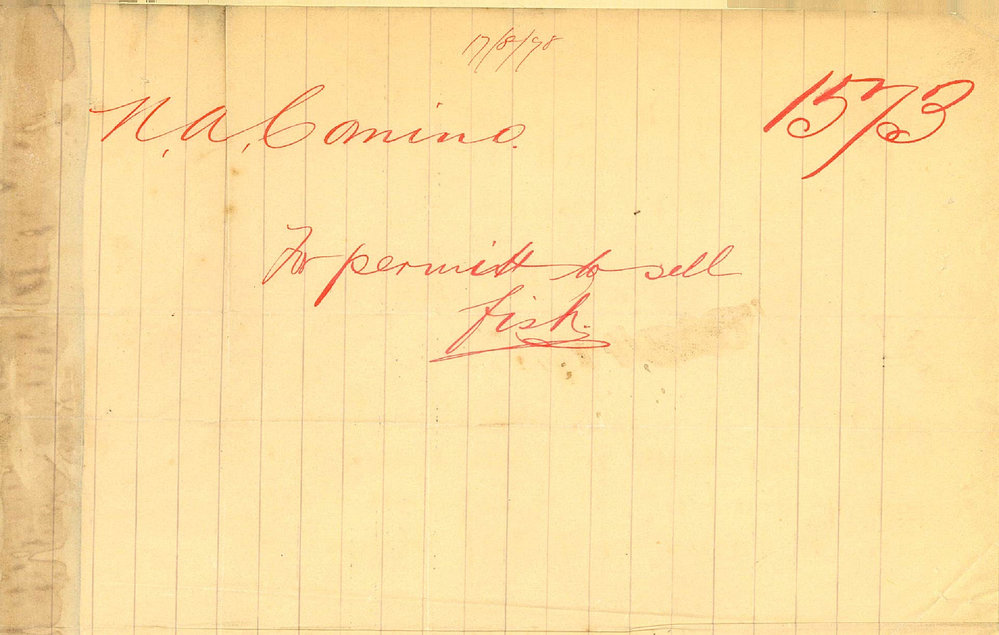 17/8/98
N. A. Comino. 1573
For permitt to sell
fish.